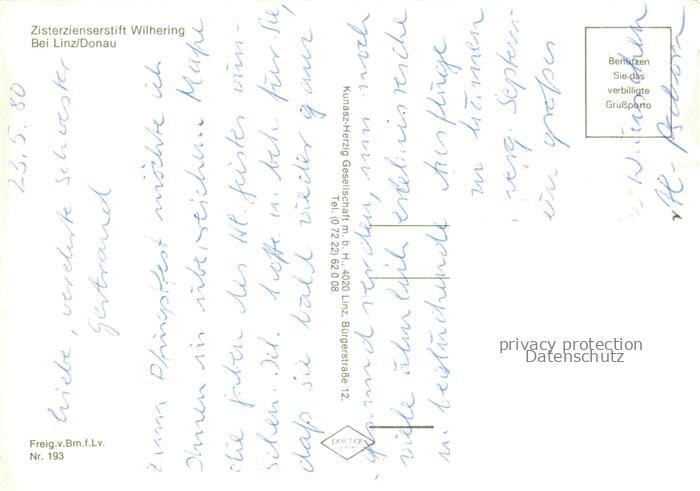 Zisterzienserstift Wilhering
Bei Linz/Donau
23.5.80
Liebe, verehrte Schwester
Gertraud
zum Pfingstfest möchte ich
Ihnen in überreichem Maße
die Gaben des Hl. Geistes wün-
schen. Ich hoffe u. bete für Sie,
daß Sie bald wieder ganz
gesund werden, um noch
viele ähnlich erlebnisreiche
u. beglückende Ausflüge
zu können
verg. Septem-
ein großes
wünschen
Kunasz-Herzig Gesellschaft m. b. H., 4020 Linz, Bürgerstraße 12,
Tel. (0 72 22) 62 0 08
Benützen
Sie das
verbilligte
Grußporto
privacy protection
Datenschutz
Freig.v.Bm.f.Lv.
Nr. 193